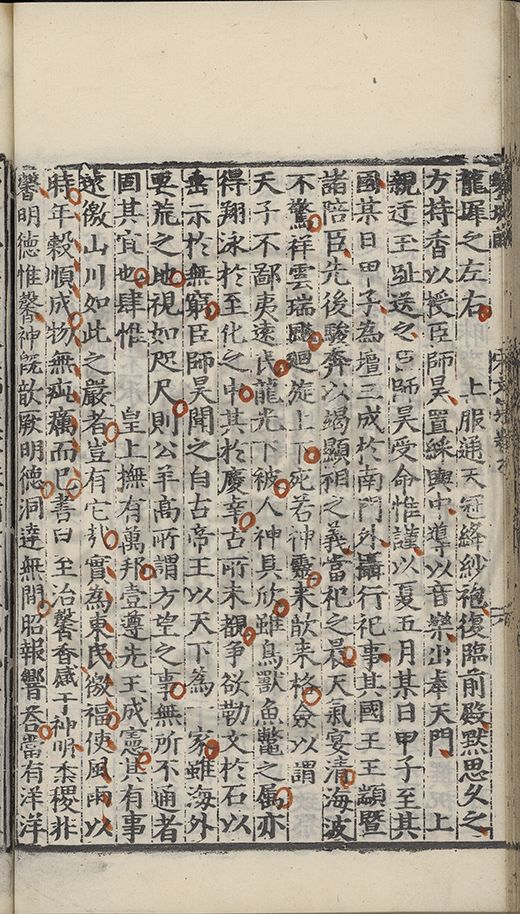 龍墀之左右上服通天冠絳紗袍復臨前殿默思久之
方持香以授臣師昊置綵輿中導以音樂出奉天門上
親迂玉趾送之臣師昊受命惟謹以夏五月某日甲子至其
國某日甲子為壇三成於南門外攝行祀事其國王王顓暨
諸陪臣先後駿奔以竭顯相之義當祀之晨天氣宴清海波
不驚祥雲瑞飈廻旋上下宛若神靈來歆來格僉以謂
天子不鄙夷遠氓龍光下被人神具欣雖鳥獸魚鼈之属亦
得翔泳於至化之中其於慶幸古所未覩争欲勒文於石以
垂示於無窮臣師昊聞之自古帝王以天下為一家雖海外
要荒之地視如咫尺則公羊髙所謂方望之事無所不通者
固其宜也肆惟皇上撫有萬邦壹尊先王成憲其有事
遠徼山川如此之嚴者豈有它哉實為東氓徼福使風雨以
時年穀順成物無疵癘而已書曰至治馨香感于神明黍稷非
馨明德惟馨神既歆厥明德洞達無間昭報響荅當有洋洋